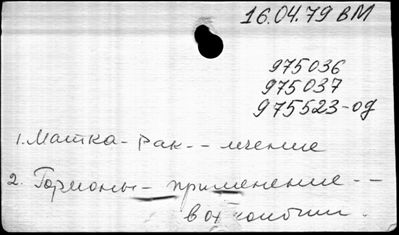 16.04.79 ВМ
975036
975037
975523-од
1. Матка - рак - - лечение
2. Гормоны - применение - -